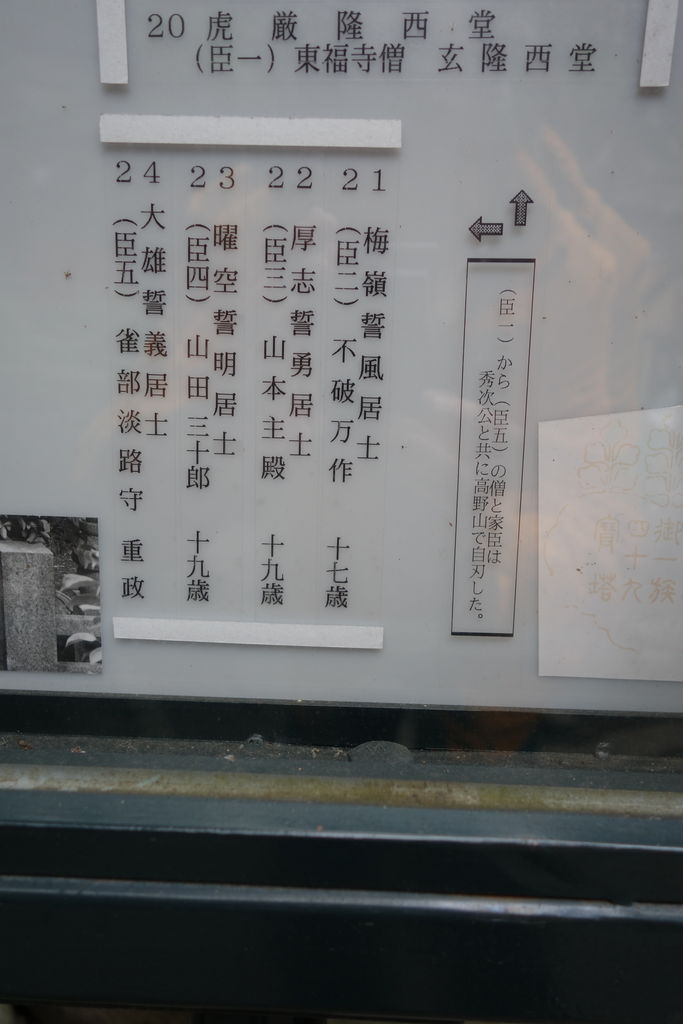 20 虎厳隆西堂
(臣一)東福寺僧 玄隆西堂
(臣一)から(臣五)の僧と家臣は
秀次公と共に高野山で自刃した。
21 梅嶺誓風居士
(臣二)不破万作 十七歳
22 厚志誓勇居士
(臣三)山本主殿 十九歳
23 曜空誓明居士
(臣四)山田三十郎 十九歳
24 大雄誓義居士
(臣五)雀部淡路守 重政
御一族
四十九
寶塔